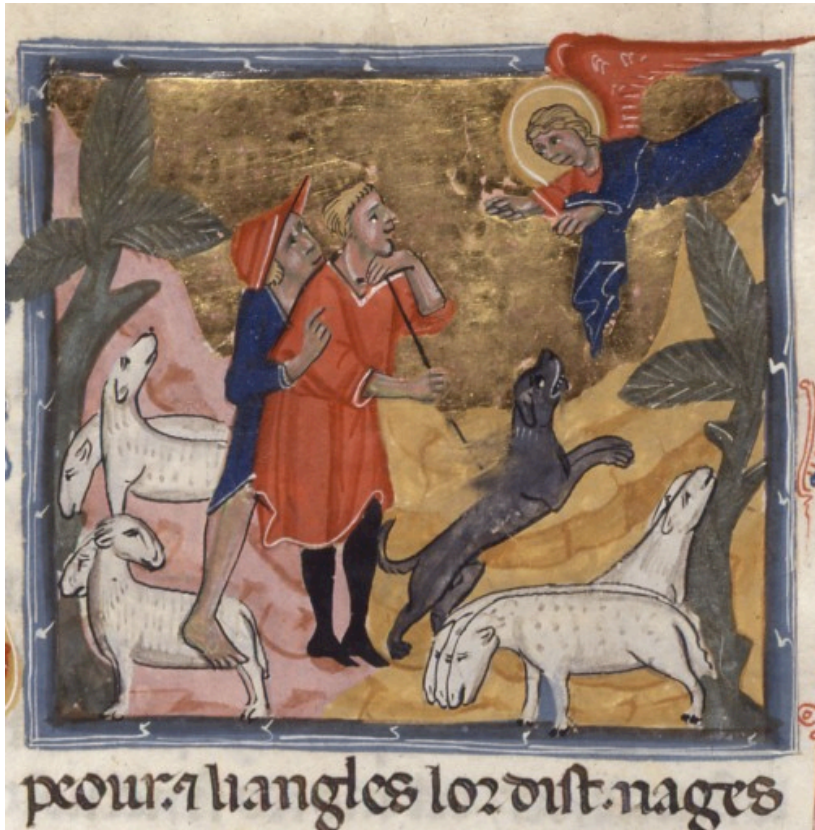 peour. ⁊ li angles lor dist. nages